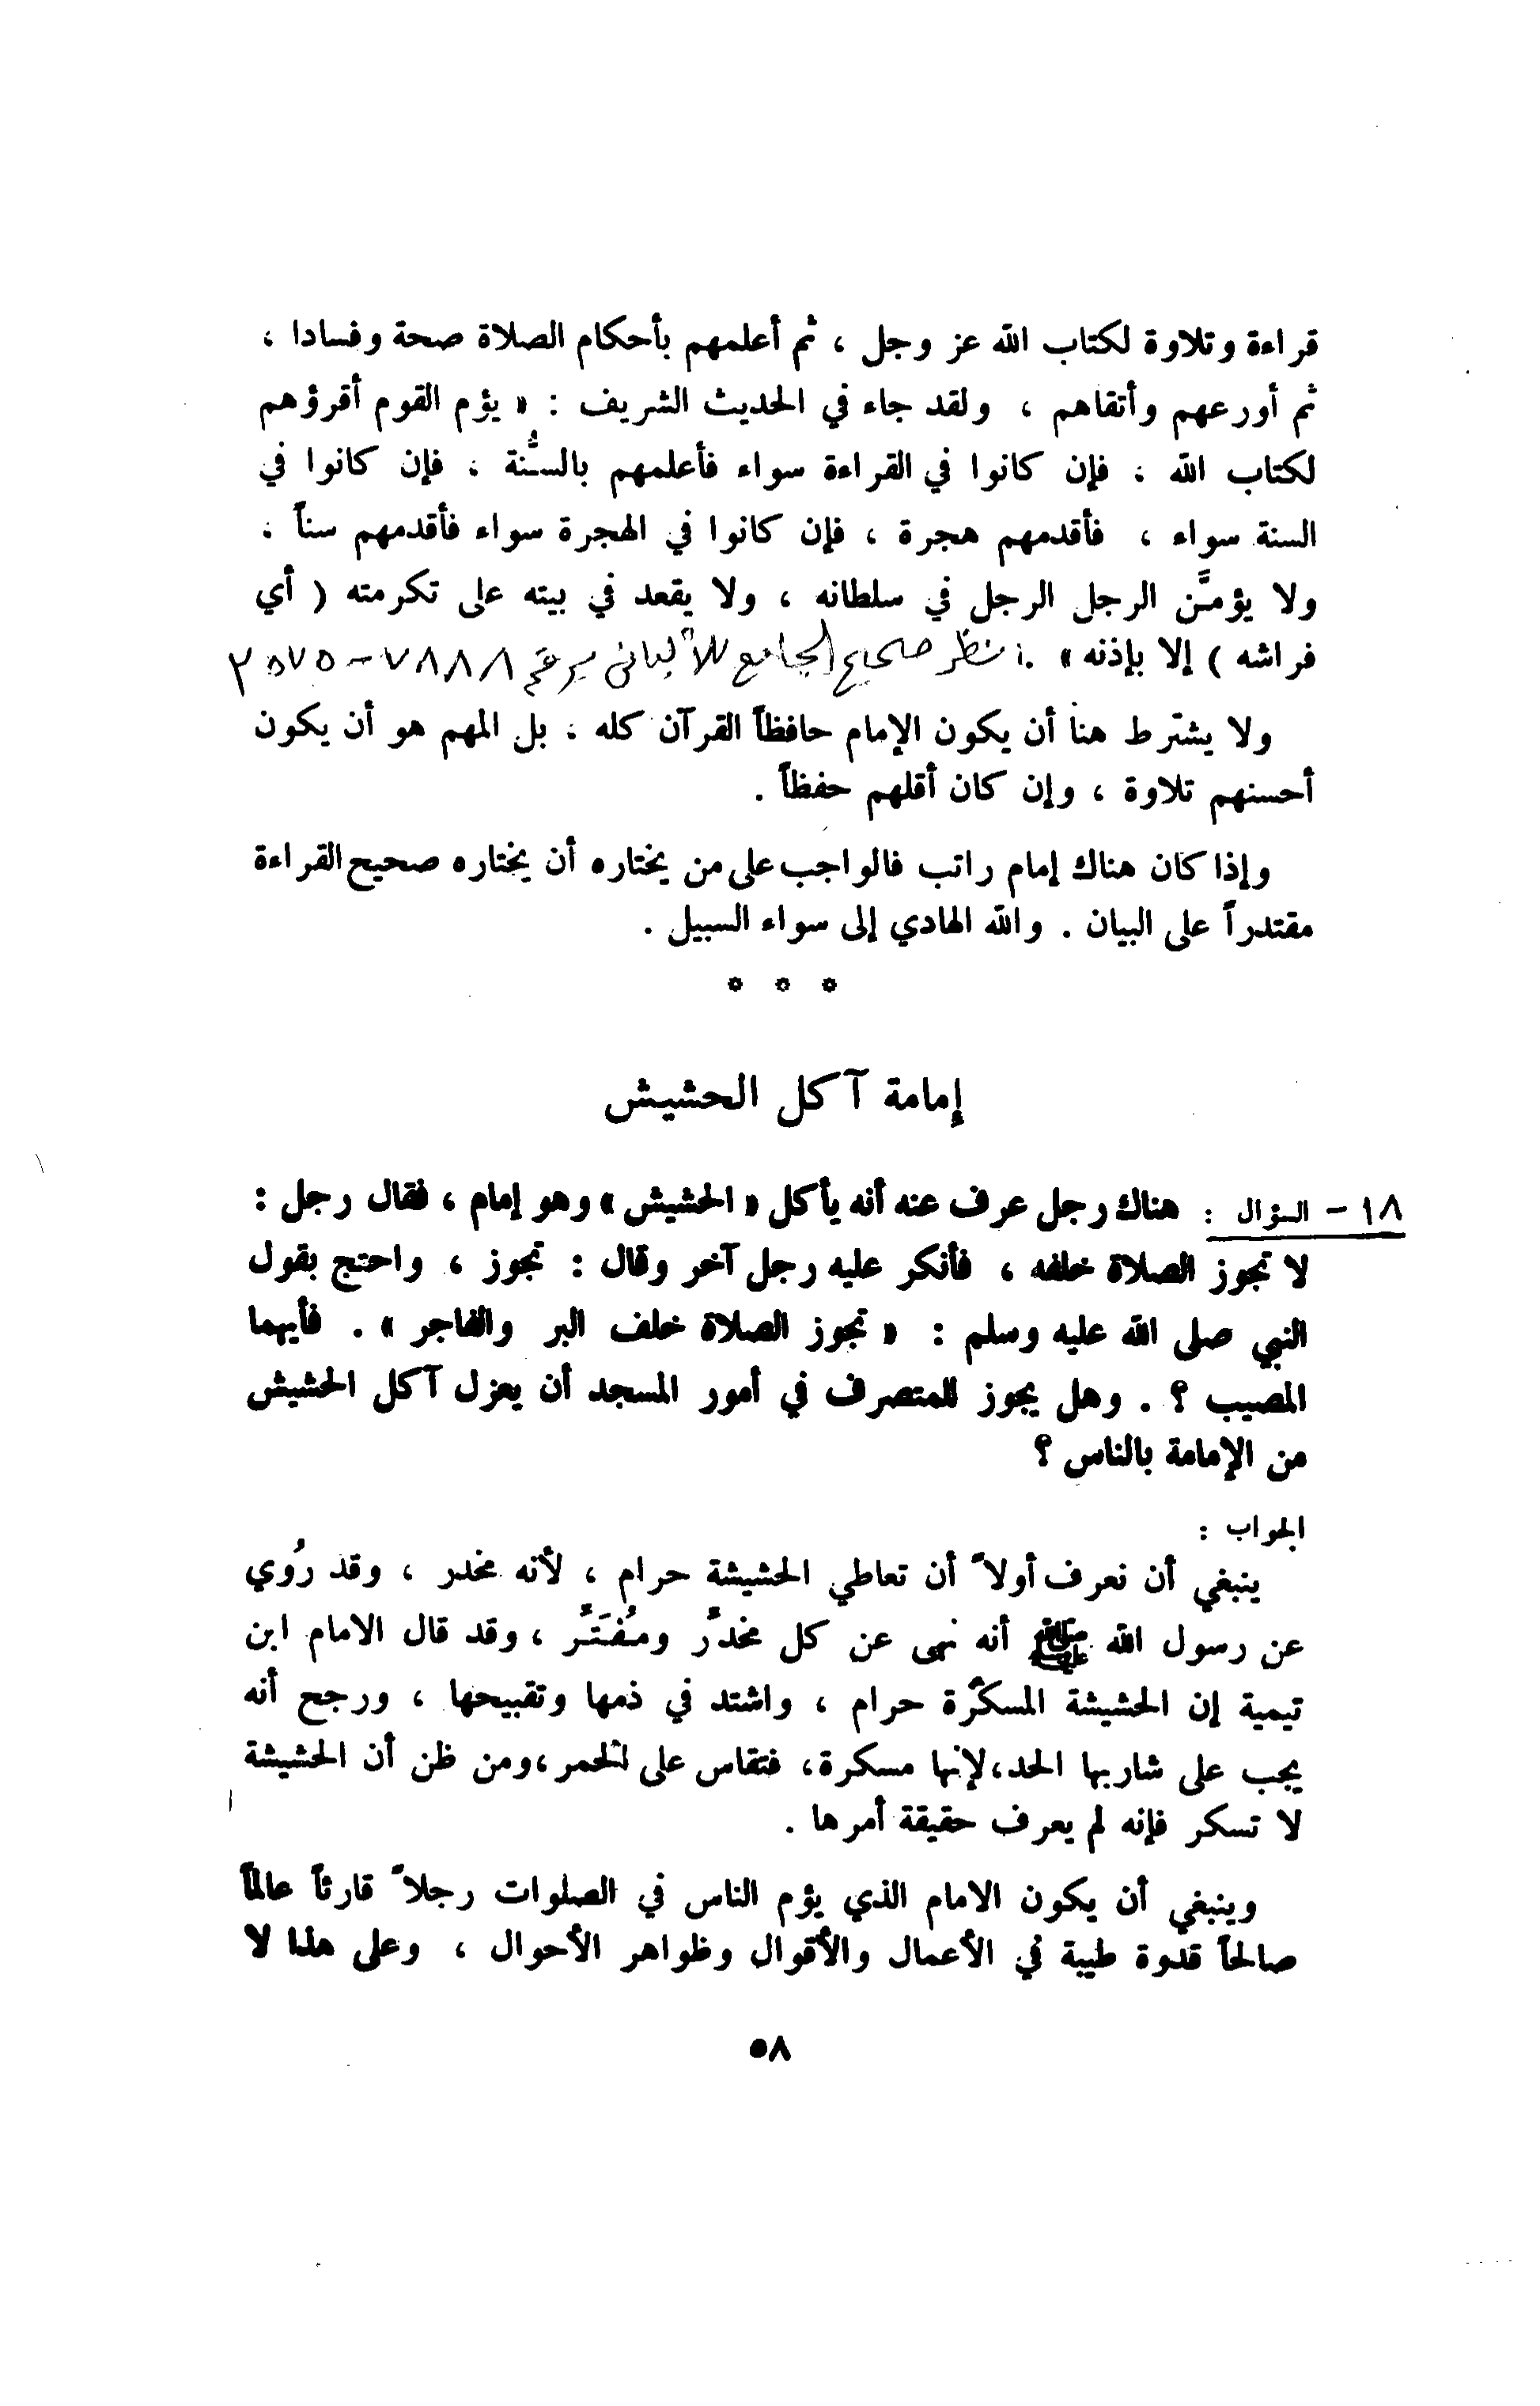 قراءة وتلاوة لكتاب الله عز وجل ، ثم أعلمهم بأحكام الصلاة صحة وفسادا ،
ثم أورعهم وأتقاهم ، ولقد جاء في الحديث الشريف : « يؤم القوم أقرؤهم
لكتاب الله ، فإن كانوا في القراءة سواء فأعلمهم بالسُّنة ، فإن كانوا في
السنة سواء ، فأقدمهم هجرة ، فإن كانوا في الهجرة سواء فأقدمهم سناً ،
ولا يؤمَّن الرجل الرجل في سلطانه ، ولا يقعد في بيته على تكرمته ( أي
فراشه ) إلا بإذنه » . انظر صحيح الجامع للألباني برقم ٧٨٨٨ - ٢٥٧٥
ولا يشترط هنا أن يكون الإمام حافظاً القرآن كله ، بل المهم هو أن يكون
أحسنهم تلاوة ، وإن كان أقلهم حفظاً .
وإذا كان هناك إمام راتب فالواجب على من يختاره أن يختاره صحيح القراءة
مقتدراً على البيان . والله الهادي إلى سواء السبيل .
* * *
إمامة آكل الحشيش
١٨ - السؤال : هناك رجل عرف عنه أنه يأكل « الحشيش » وهو إمام ، فقال رجل :
لا تجوز الصلاة خلفه ، فأنكر عليه رجل آخر وقال : تجوز ، واحتج بقول
النبي صلى الله عليه وسلم : « تجوز الصلاة خلف البر والفاجر » . فأيهما
المصيب ؟ . وهل يجوز للمتصرف في أمور المسجد أن يعزل آكل الحشيش
من الإمامة بالناس ؟
الجواب :
ينبغي أن نعرف أولاً أن تعاطي الحشيشة حرام ، لأنه مخدر ، وقد رُوي
عن رسول الله ﷺ أنه نهى عن كل مخدِّر ومُفَتِّر ، وقد قال الامام ابن
تيمية إن الحشيشة المسكرة حرام ، واشتد في ذمها وتقبيحها ، ورجح أنه
يجب على شاربها الحد ، لإنها مسكرة ، فتقاس على الخمر ، ومن ظن أن الحشيشة
لا تسكر فإنه لم يعرف حقيقة أمرها .
وينبغي أن يكون الامام الذي يؤم الناس في الصلوات رجلاً قارئاً عالماً
صالحاً قدوة طيبة في الأعمال والأقوال وظواهر الأحوال ، وعلى هذا لا
٥٨